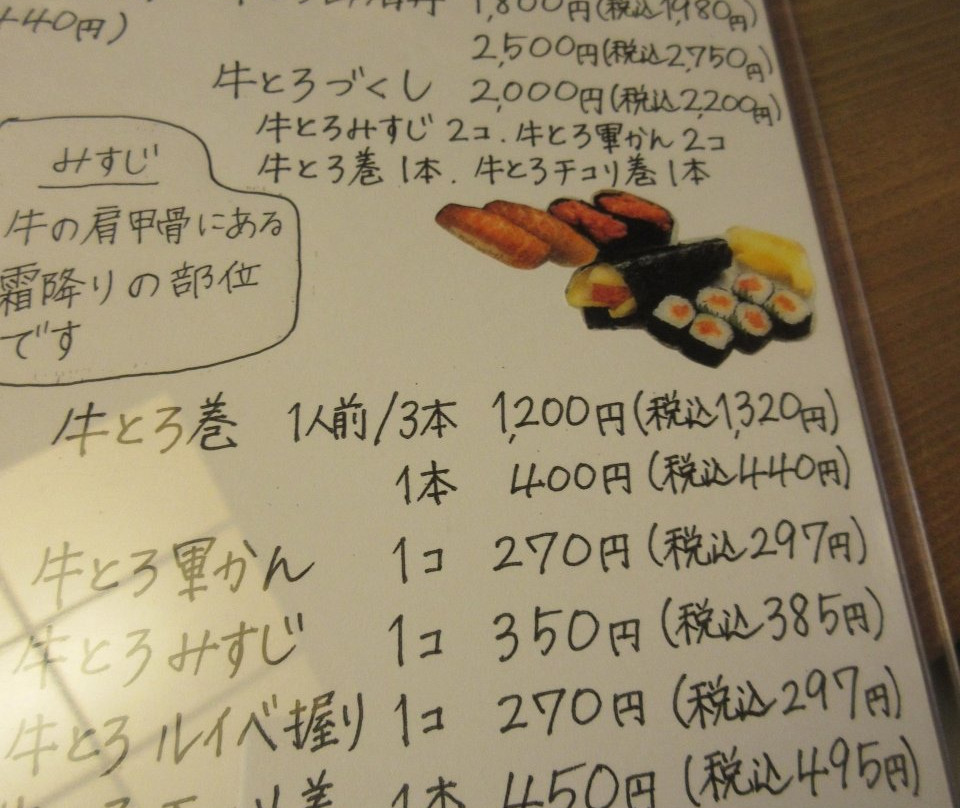 +40円)
1,800円(税込1,980円)
2,500円(税込2,750円)
牛とろづくし 2,000円(税込2,200円)
牛とろみすじ 2コ．牛とろ軍かん 2コ
牛とろ巻 1本．牛とろチコリ巻 1本
みすじ
牛の肩甲骨にある
霜降りの部位
です
牛とろ巻 1人前/3本 1,200円(税込1,320円)
1本 400円(税込440円)
牛とろ軍かん 1コ 270円(税込297円)
牛とろみすじ 1コ 350円(税込385円)
牛とろルイベ握り 1コ 270円(税込297円)
牛とろチコリ巻 1本 450円(税込495円)